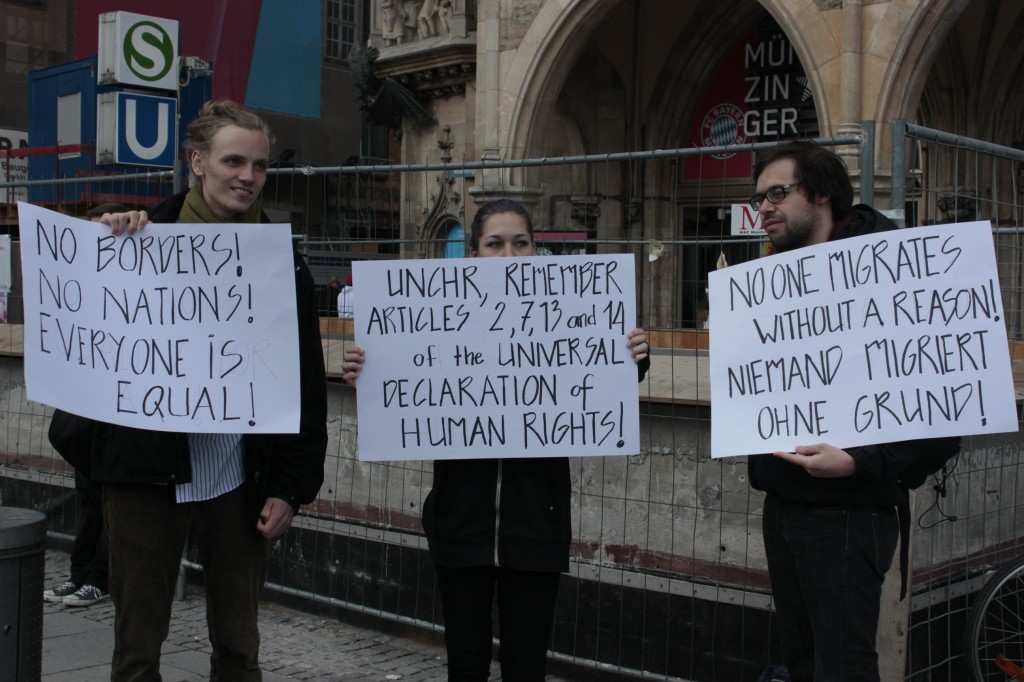 S
U
MÜN
ZIN
GER
FC BAYERN
M
NO BORDERS!
NO NATIONS!
EVERYONE iS
EQUAL!
UNCHR, REMEMBER
ARTICLES 2,7,13 and 14
of the UNIVERSAL
DECLARATION of
HUMAN RIGHTS!
NO ONE MIGRATES
WITHOUT A REASON!
NIEMAND MIGRIERT
OHNE GRUND!